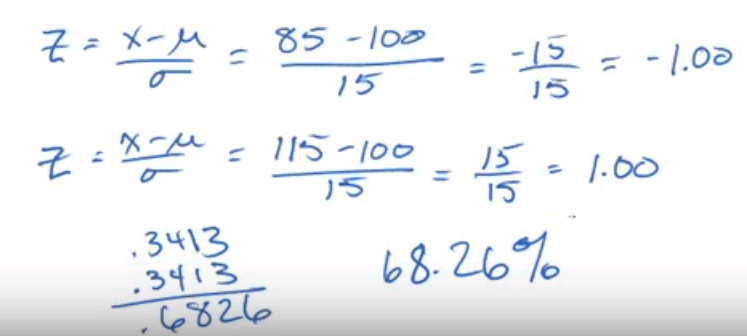 Z = x-μ/σ = 85-100/15 = -15/15 = -1.00
Z = x-μ/σ = 115-100/15 = 15/15 = 1.00
.3413
.3413
.6826
68.26%